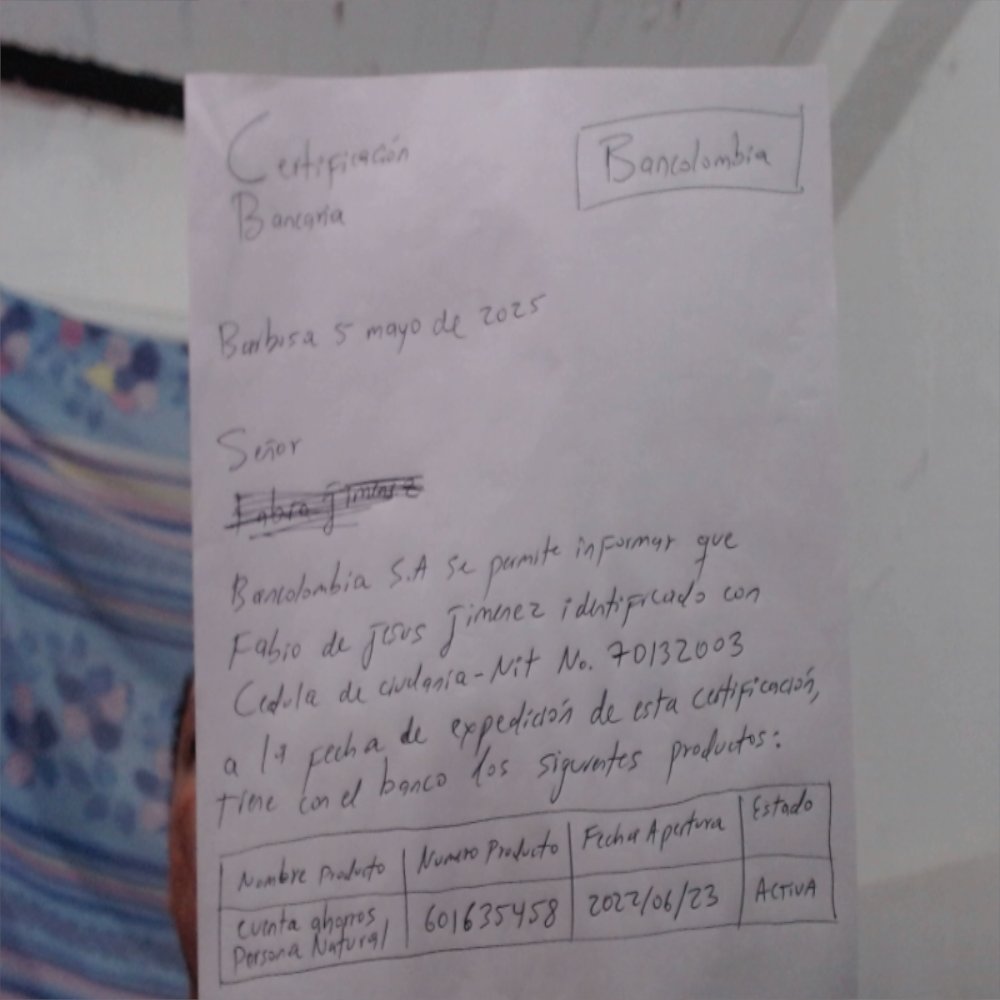 Certificación
Bancaria
Bancolombia
Barbosa 5 mayo de 2025
Señor
Bancolombia S.A se permite informar que
Fabio de Jesus Jimenez identificado con
Cedula de ciudania-Nit No. 70132003
a la fecha de expedición de esta certificación,
tiene con el banco los siguientes productos:
Nombre Producto Numero Producto Fecha Apertura Estado
cuenta ahorros 601635458 2022/06/23 ACTIVA
Persona Natural